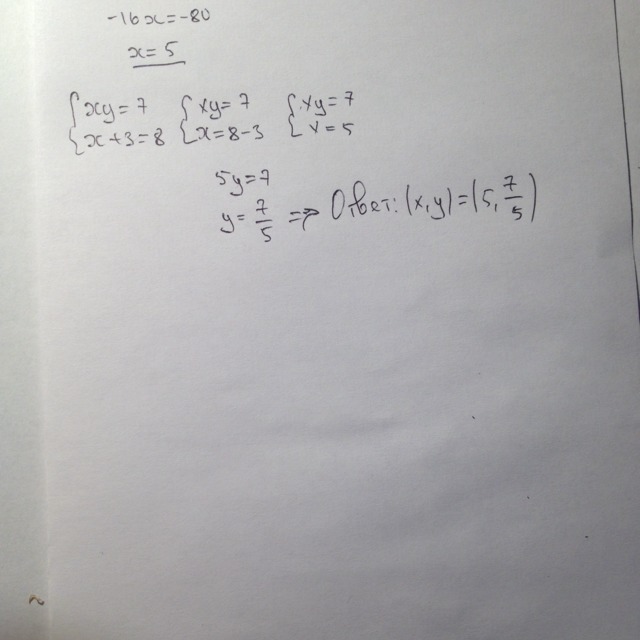 -16x=-80
x=5
{xy=7 {xy=7 {xy=7
{x+3=8 {x=8-3 {x=5
5y=7
y=7/5 => Ответ: (x,y)=(5,7/5)